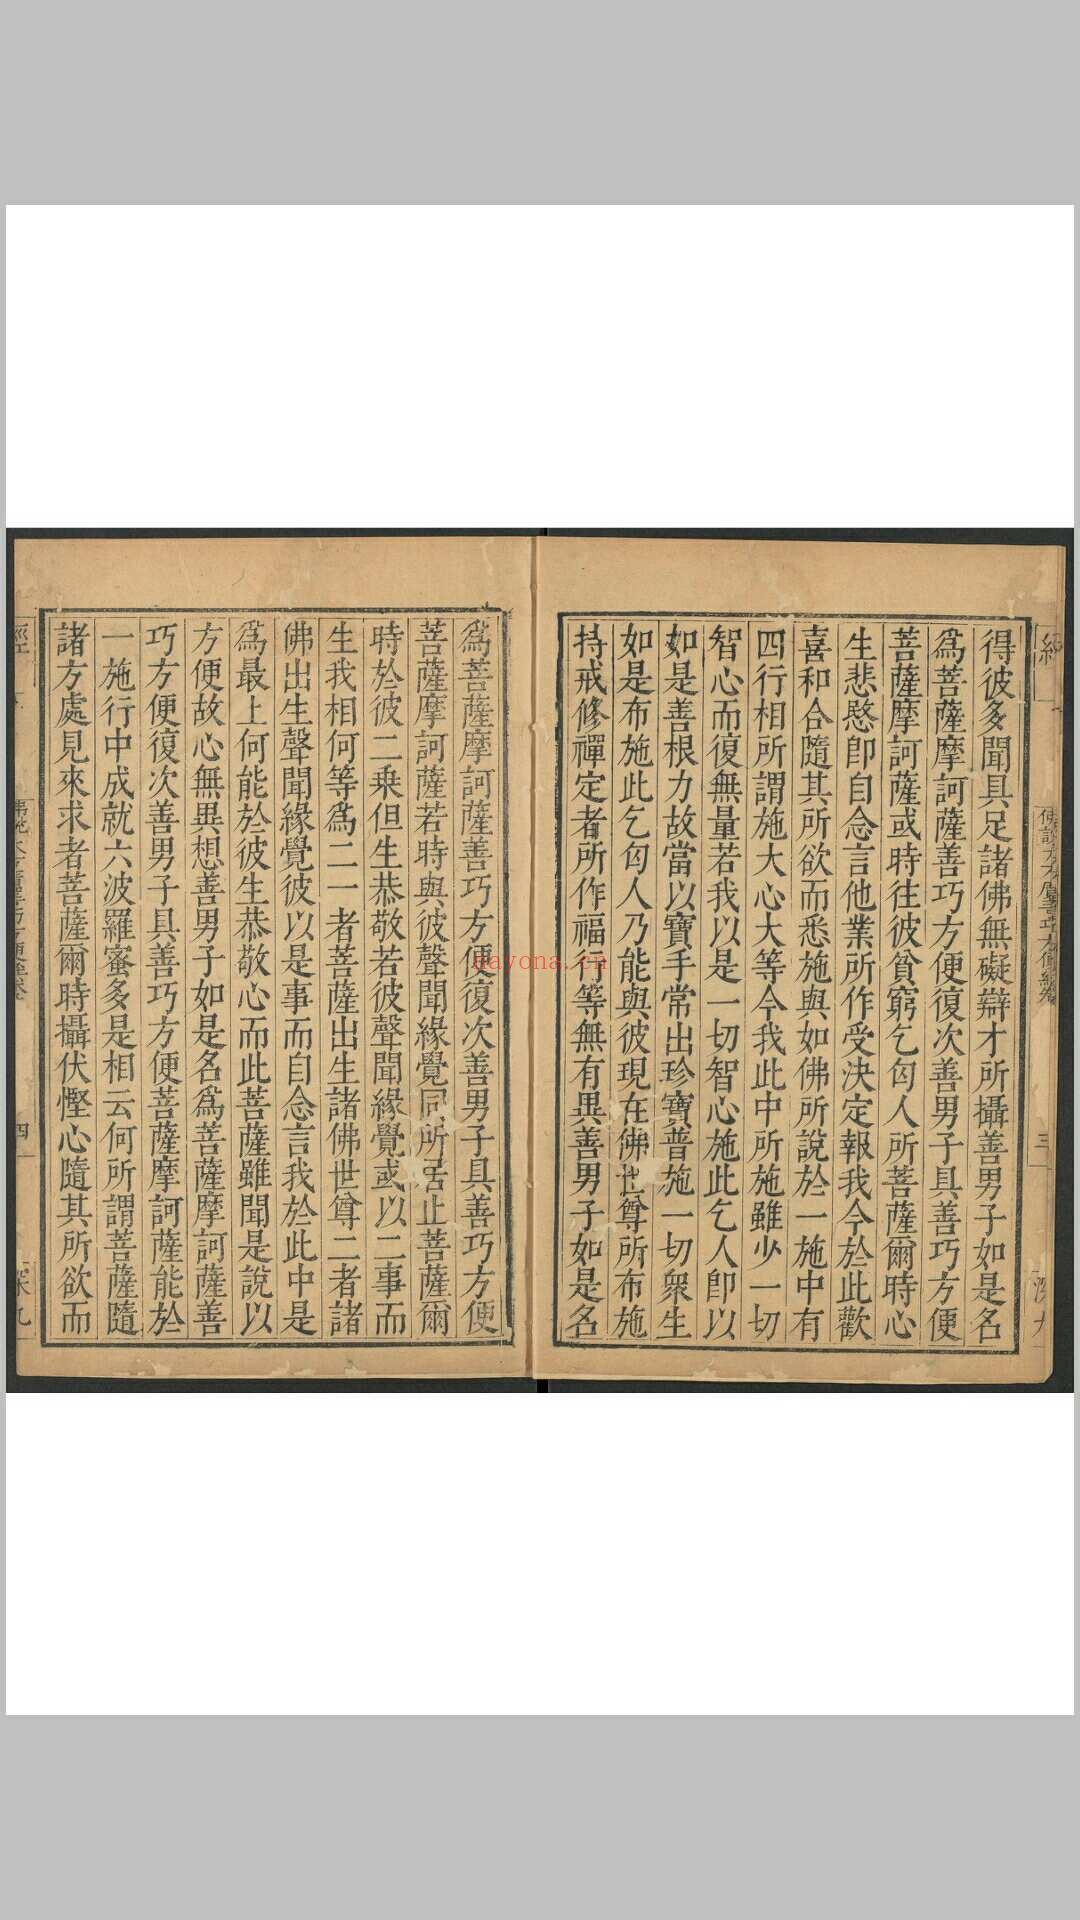 得彼多聞具足諸佛無礙辯才所攝善男子如是名
爲菩薩摩訶薩善巧方便復次善男子具善巧方便
菩薩摩訶薩或時往彼貧窮乞匃人所菩薩爾時心
生悲愍卽自念言他業所作受決定報我今於此歡
喜和合隨其所欲而悉施與如佛所說於一施中有
四行相所謂施大心大等今我此中所施雖少一切
智心而復無量若我以是一切智心施此乞人卽以
如是善根力故當以寶手常出珍寶普施一切衆生
如是布施此乞匃人乃能與彼現在佛世尊所布施
持戒修禪定者所作福行等無有異善男子如是名
爲菩薩摩訶薩善巧方便復次善男子具善巧方便
菩薩摩訶薩若時與彼聲聞緣覺同所居止菩薩爾
時於彼二乗但生恭敬若彼聲聞緣覺或以二事而
生我相何等爲二一者菩薩出生諸佛世尊二者諸
佛出生聲聞緣覺彼以是事而自念言我於此中是
爲最上何能於彼生恭敬心而此菩薩雖聞是說以
方便故心無異想善男子如是名爲菩薩摩訶薩善
巧方便復次善男子具善巧方便菩薩摩訶薩能於
一施行中成就六波羅蜜多是相云何所謂菩薩隨
諸方處見來求者菩薩爾時攝伏慳心隨其所欲而
經
三
四
nayona.cn